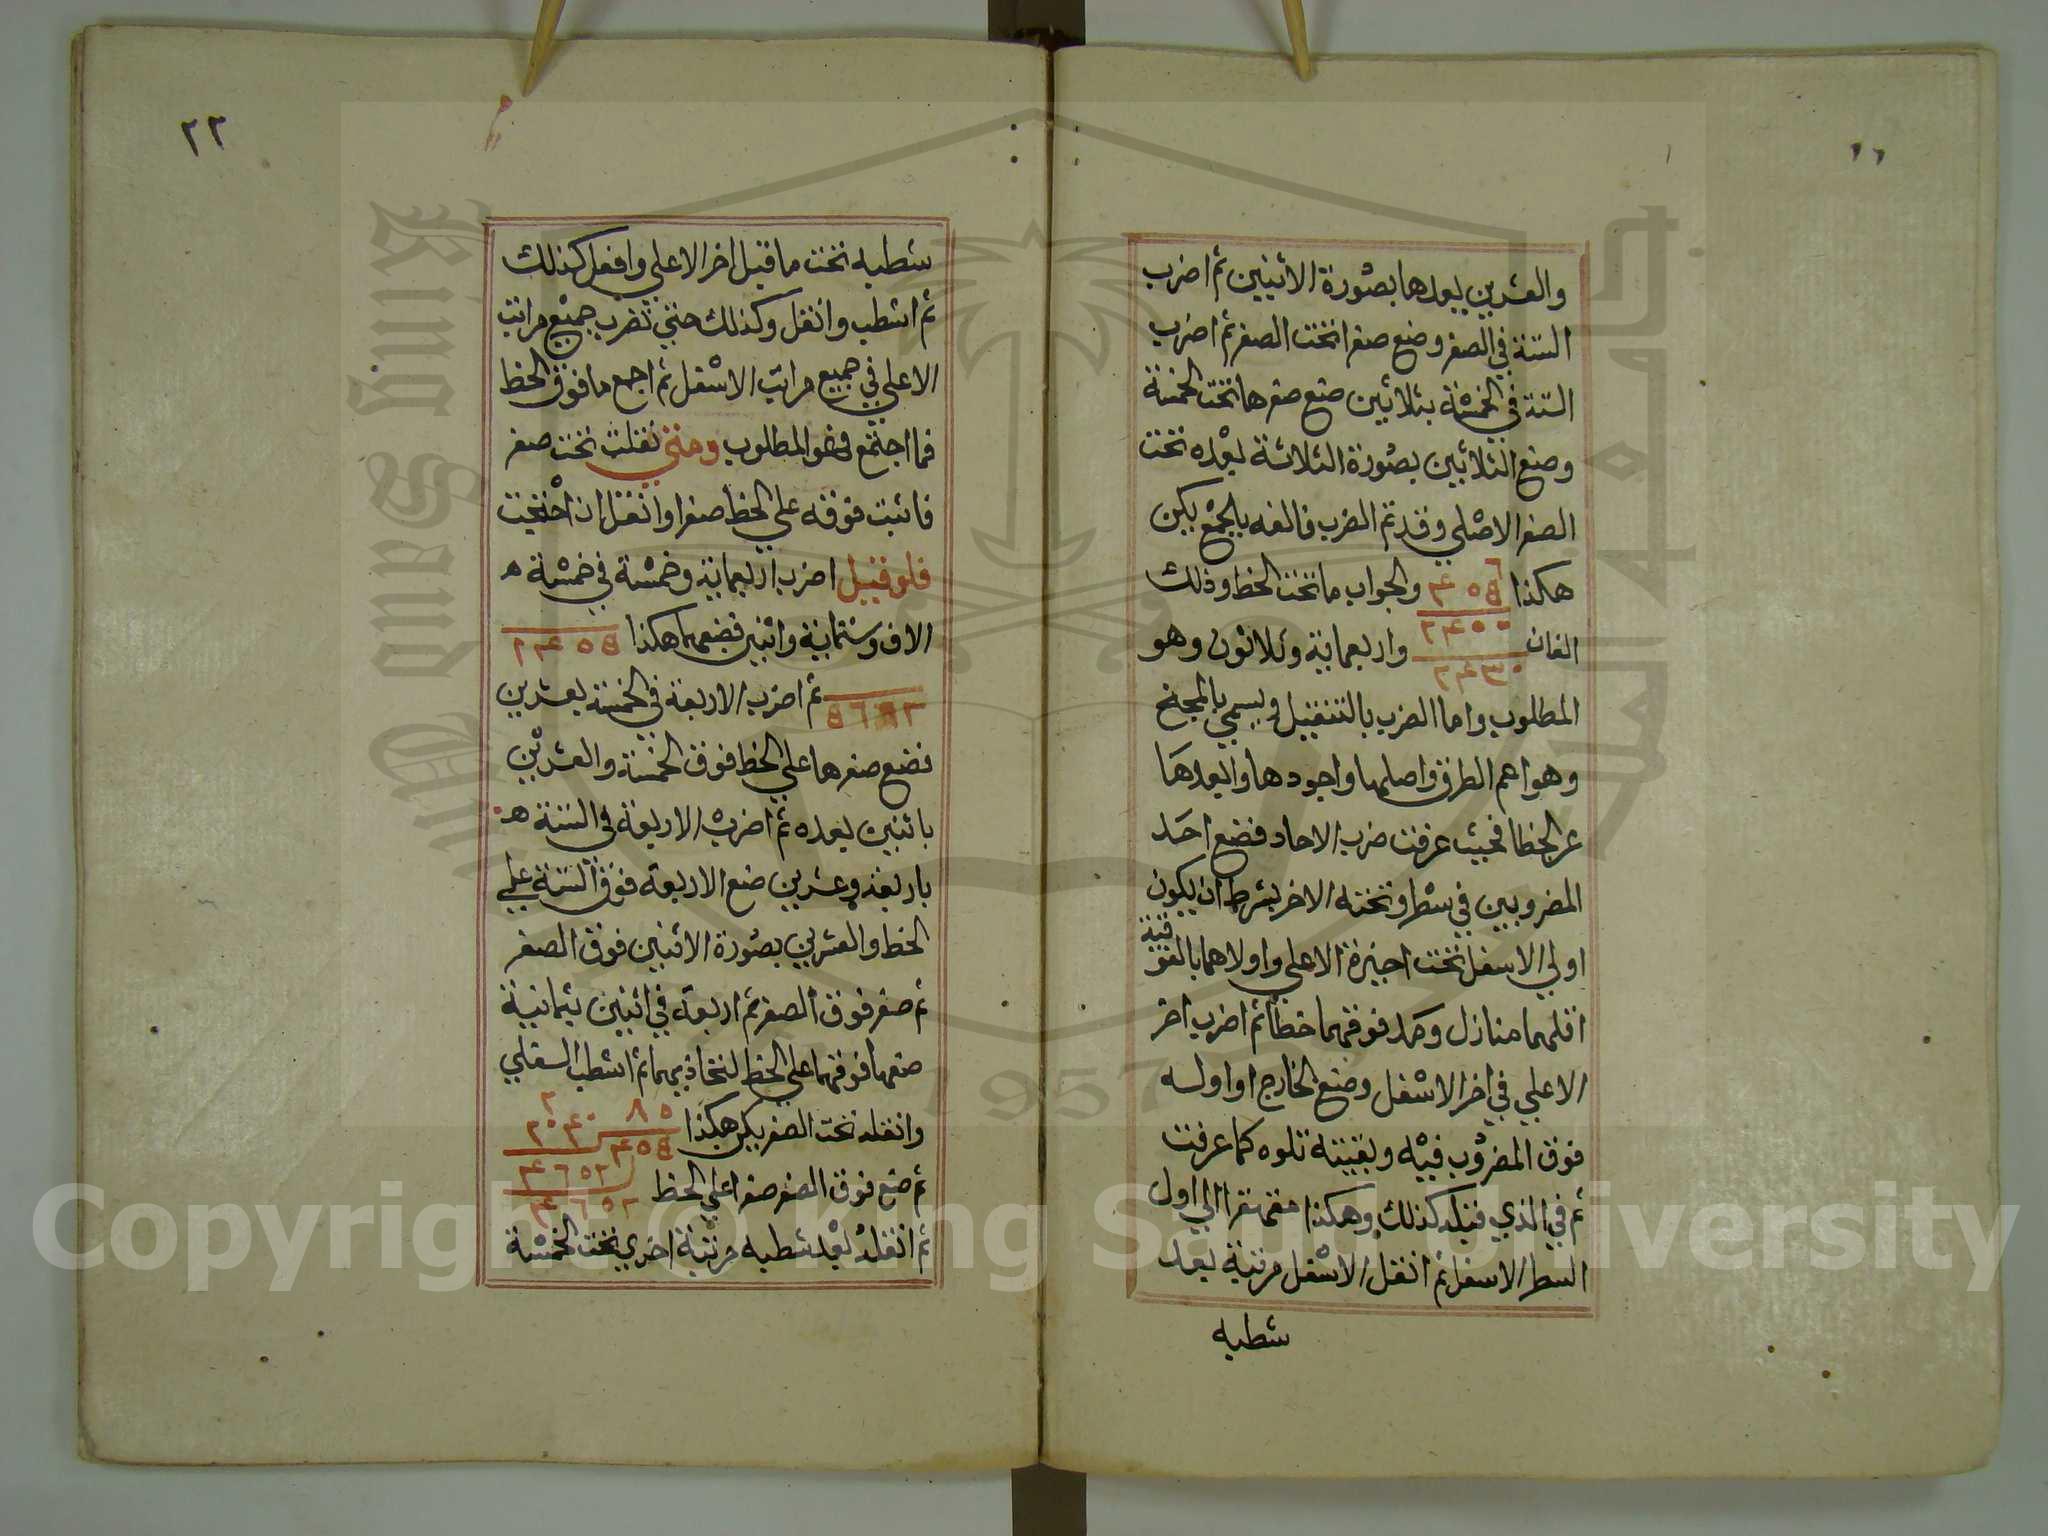 والعشرين بعدها بصورة الاثنين ثم اضرب
الستة في الصفر وضع صفرا تحت الصفر ثم اضرب
الستة في الخمسة بثلاثين ضع صفرها تحت الخمسة
وضع الثلاثين بصورة الثلاثة بعده تحت
الصفر الاصلي وقد تم الضرب فالغه بالجمع يكن
هكذا والجواب ما تحت الخط وذلك
الفان واربعماية وثلاثون وهو
المطلوب واما الضرب بالتنقيل ويسمى بالمجنح
وهو اهم الطرق واصلها واجودها وابعدها
عن الخطا فحيث عرفت ضرب الاحاد فضع احد
المضروبين في سطر وتحته الاخر بشرط ان يكون
اولي الاسفل تحت اخيرة الاعلي واولاهما بالفوقية
اقلهما منازل ومد فوقهما خطا ثم اضرب اخر
الاعلي في اخر الاسفل وضع الخارج او اوله
فوق المضروب فيه وبقيته تلوه كما عرفت
ثم في الذي قبله كذلك وهكذا مقهقرا الي اول
السطر الاسفل ثم انقل الاسفل مرتبة بعد
شطبه
٢٢
شطبه تحت ما قبل اخر الاعلي وافعل كذلك
ثم اشطب وانقل وكذلك حتي تضرب جميع مراتب
الاعلي في جميع مراتب الاسفل ثم اجمع ما فوق الخط
فما اجتمع فهو المطلوب ومتي نقلت تحت صفر
فاثبت فوقه علي الخط صفرا وانقل ان احتجت
فلو قيل اضرب اربعماية وخمسة في خمسة ه
الاف وستماية واثنين فضعهما هكذا
ثم اضرب الاربعة في الخمسة بعشرين
فضع صفرها علي الخط فوق الخمسة والعشرين
باثنين بعده ثم اضرب الاربعة في الستة ه
باربعة وعشرين ضع الاربعة فوق الستة علي
الخط والعشرين بصورة الاثنين فوق الصفر
ثم صفر فوق الصفر ثم اربعة في اثنين بثمانية
ضعها فوقهما علي الخط لتحاذيهما ثم اشطب السفلي
وانقله تحت الصفر يكن هكذا
ثم ضع فوق الصفر صفرا علي الخط
ثم انقله بعد شطبه مرتبة اخري تحت الخمسة
Copyright © King Saud University
1957